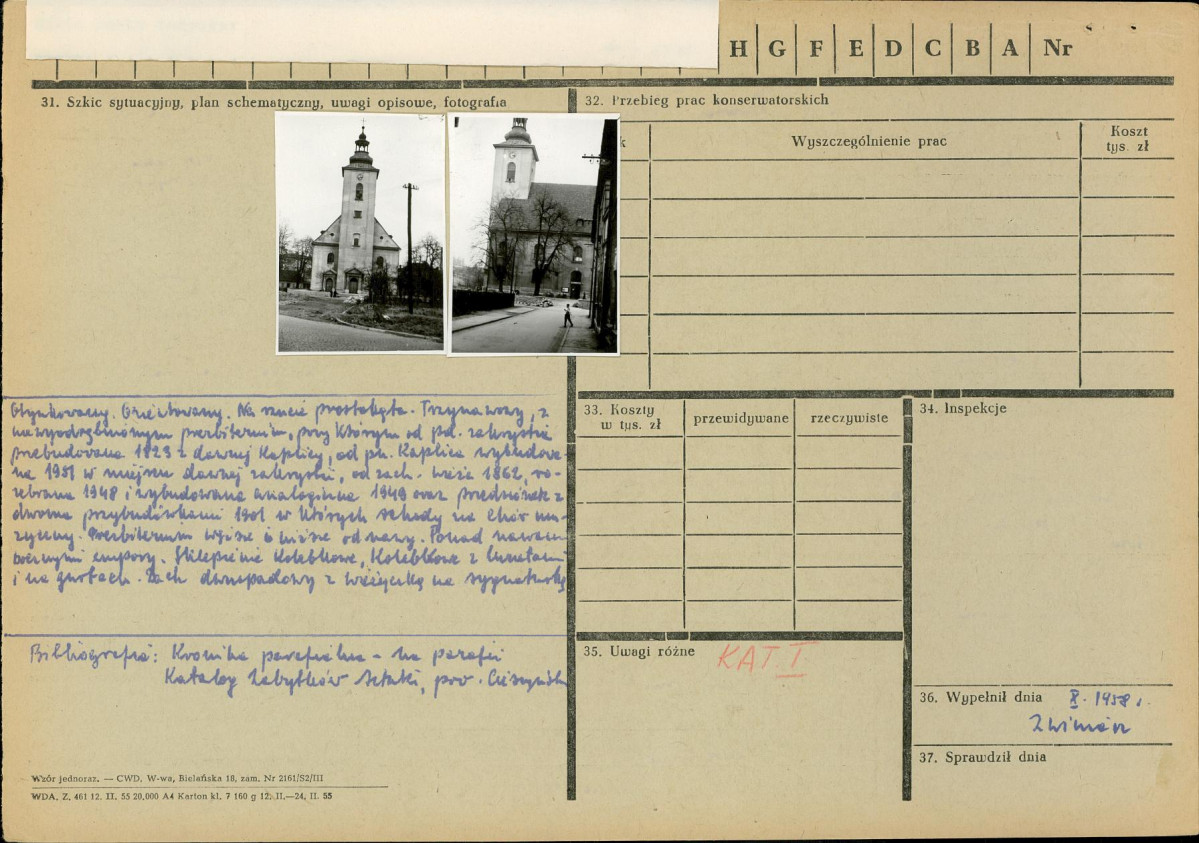 H G F E D C B A Nr
31. Szkic sytuacyjny, plan schematyczny, uwagi opisowe, fotografia
32. Przebieg prac konserwatorskich
k
Wyszczególnienie prac
Koszt
tys. zł
Otynkowany. Orientowany. Na rzucie prostokąta. Trzynawowy, z
niewyodrębnionym prezbiterium, przy którym od pd. zakrystia
przebudowana 1823 z dawnej kaplicy, od pn. kaplica wybudowa-
na 1951 w miejscu dawnej zakrystii, od zach. wieża 1862, ro-
zebrana 1948 i wybudowana analogiczna 1949 oraz przedsionek z
dwoma przybudówkami 1901 w których schody na chór mu-
zyczny. Prezbiterium węższe i niższe od nawy. Ponad nawami
bocznymi empory. Sklepienie kolebkowe, kolebkowe z lunetami
i na gurtach. Dach dwuspadowy z wieżyczką na sygnaturkę
Bibliografia: Kronika parafialna - na parafii
Katalog Zabytków Sztuki, pow. Cieszyński
33. Koszty
w tys. zł
przewidywane
rzeczywiste
34. Inspekcje
35. Uwagi różne
KAT. I.
36. Wypełnił dnia X. 1958 r.
37. Sprawdził dnia
Wzór jednoraz. — CWD, W-wa, Bielańska 18, zam. Nr 2161/S2/III
WDA. Z. 461 12. II. 55 20.000 A4 Karton kl. 7 160 g 12. II.—24. II. 55